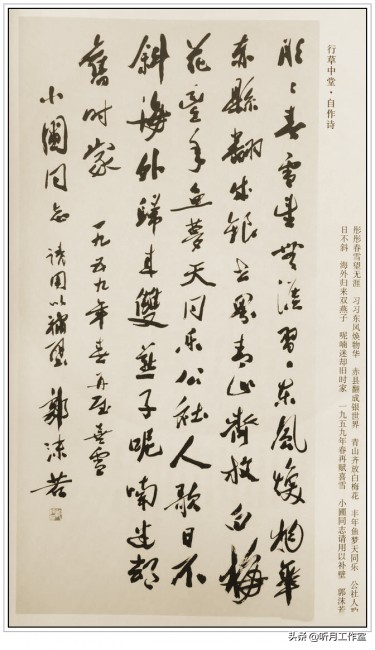 行草中堂·自作诗
彤彤春雪望无涯 习习东风焕物华 赤县翻成银世界 青山齐放白梅花 丰年鱼梦天同乐 公社人歌
日不斜 海外归来双燕子 呢喃迷却旧时家 一九五九年春再赋喜雪 小圃同志请用以补壁 郭沫若
彤〻春雪望無涯習〻東風煥物華
赤縣翻成銀世界青山齊放白梅
花豐年魚夢天同樂公社人歌日不
斜海外歸來雙燕子呢喃迷却
舊時家 一九五九年春再賦喜雪
小圃同志 請用以補壁 郭沫若
头条 @听月工作室